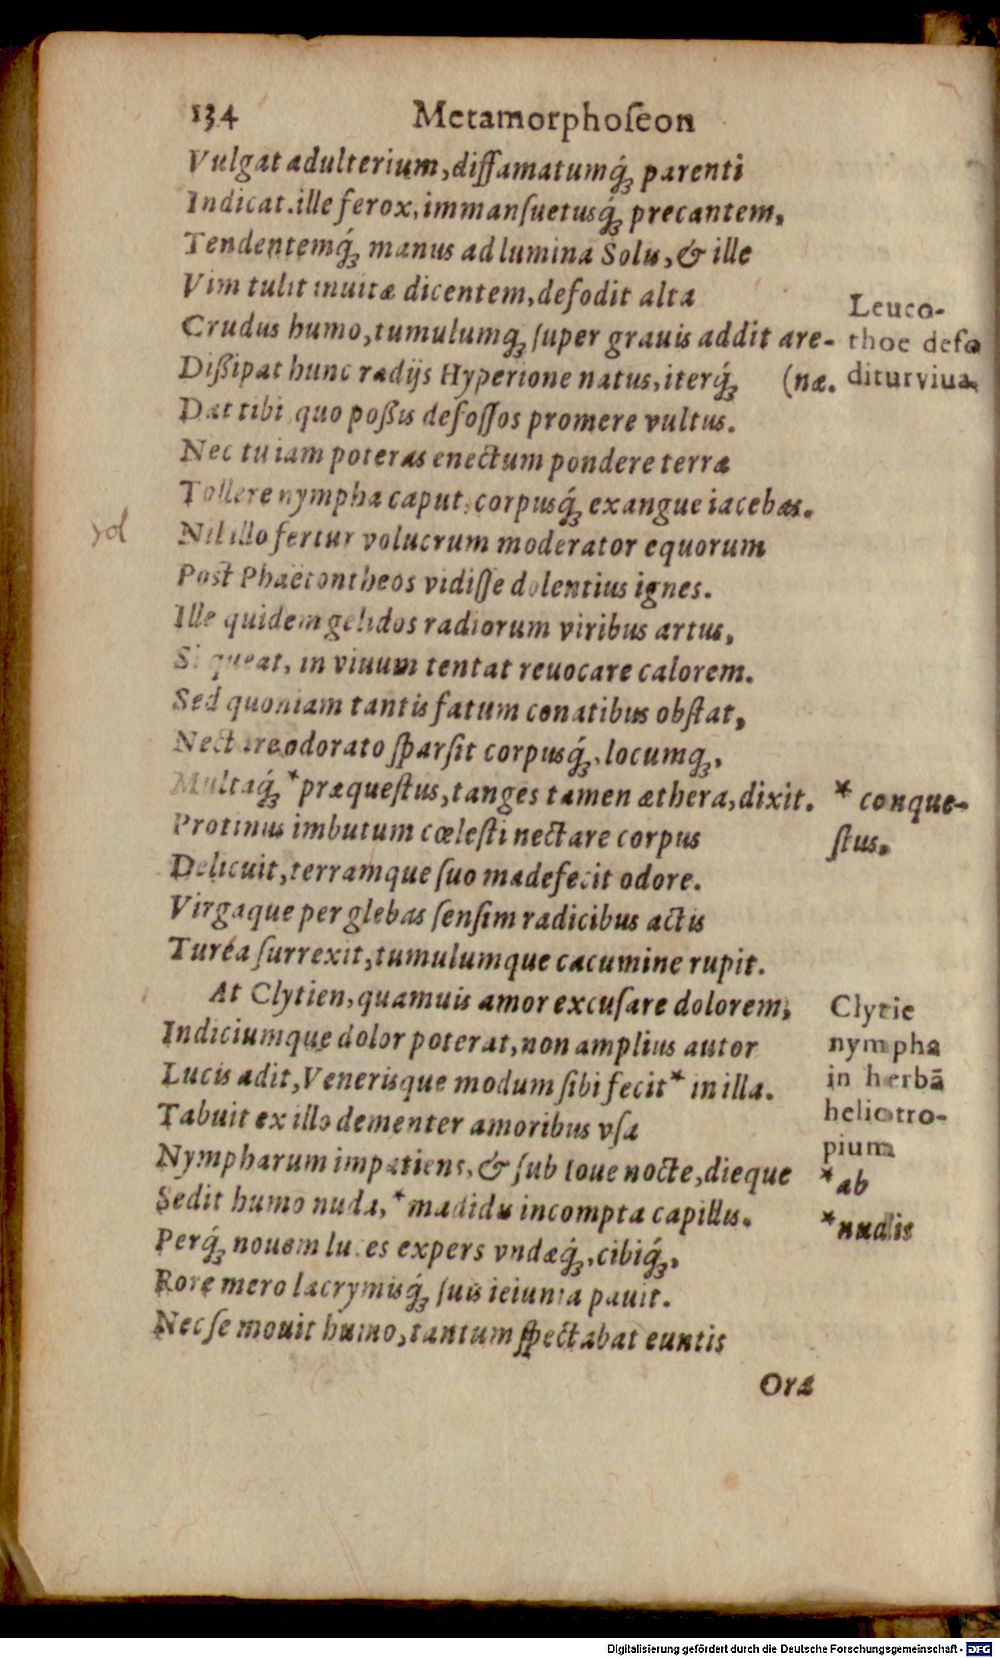 134 Metamorphoſeon
Vulgat adulterium, diffamatumq́ꝫ parenti
Indicat. ille ferox, immanſuetusq́ꝫ precantem,
Tendentemq́ꝫ manus ad lumina Solis, & ille
Vim tulit inuitæ dicentem, defodit alta
Crudus humo, tumulumqꝫ ſuper grauis addit are-
(næ.
Dißipat hunc radijs Hyperione natus, iterq́ꝫ
Dat tibi quo poßis defoſſos promere vultus.
Nec tu iam poteras enectum pondere terræ
Tollere nympha caput, corpusq́ꝫ exangue iacebas.
Nil illo fertur volucrum moderator equorum
Post Phaëtontheos vidiſſe dolentius ignes.
Ille quidem gelidos radiorum viribus artus,
Si queat, in viuum tentat reuocare calorem.
Sed quoniam tantis fatum conatibus obſtat,
Nectare odorato ſparſit corpusq́ꝫ, locumqꝫ,
Multaq́ꝫ *præqueſtus, tanges tamen æthera, dixit.
Protinus imbutum cœleſti nectare corpus
Delicuit, terramque ſuo madefecit odore.
Virgaque per glebas ſenſim radicibus actis
Turéa ſurrexit, tumulumque cacumine rupit.
At Clytien, quamuis amor excuſare dolorem,
Indiciumque dolor poterat, non amplius autor
Lucis adit, Venerisque modum ſibi fecit * in illa.
Tabuit ex illo dementer amoribus vſa
Nympharum impatiens, & ſub Ioue nocte, dieque
Sedit humo nuda, *madidis incompta capillis.
Perq́ꝫ nouem luces expers vndæq́ꝫ, cibiq́ꝫ,
Rore mero lacrymisq́ꝫ ſuis ieiunia pauit.
Nec ſe mouit humo, tantum ſpectabat euntis
Ora
Leuco-
thoe defo
ditur viua.
* conque-
ſtus.
Clytie
nympha
in herbã
heliotro-
pium
*ab
*nudis
Digitalisierung gefördert durch die Deutsche Forschungsgemeinschaft - DFG